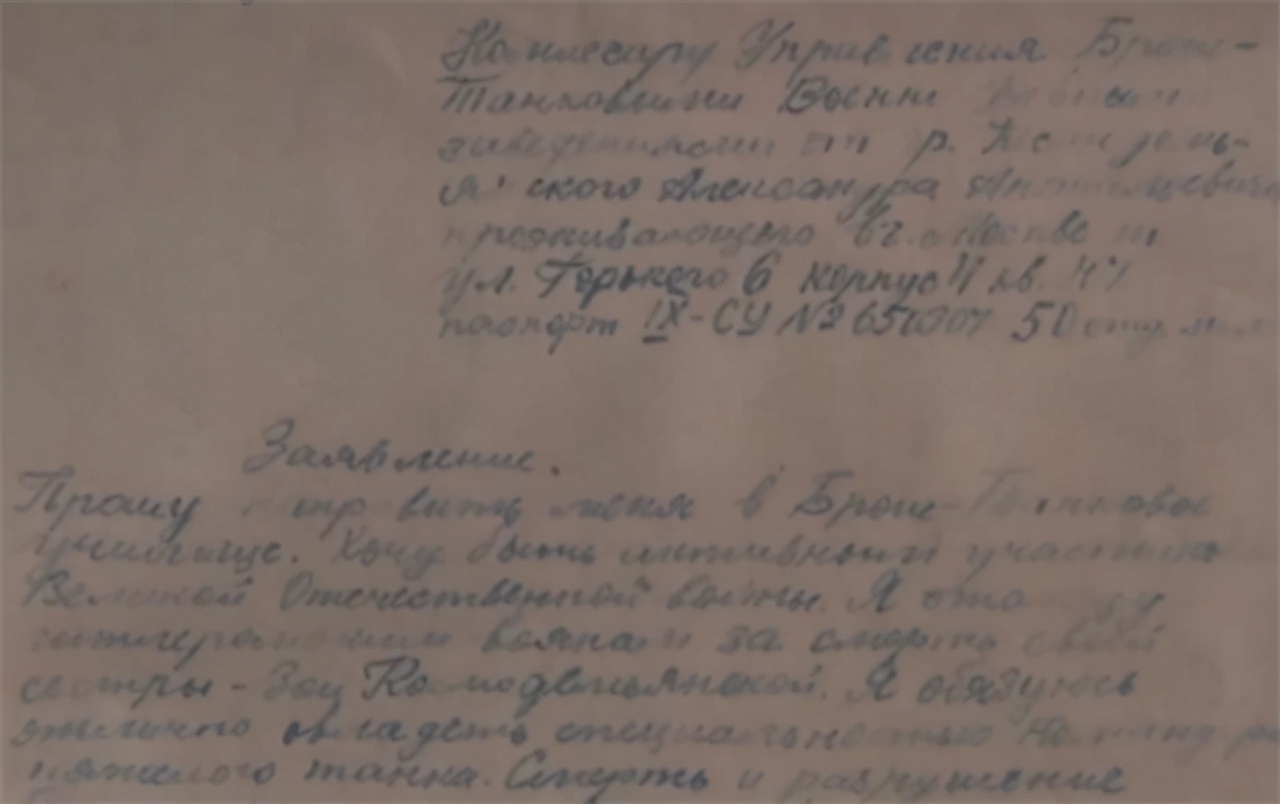 Комиссару Управления Броне-
Танковыми Военн
заведениями от гр. Космодемь-
янского Александра Анатольевича
проживающего в г. Москве
ул. Горького 6 корпус 4 кв. 47
паспорт IX-СУ №
Заявление.
Прошу отправить меня в Броне-Танковое
училище. Хочу быть активным участником
Великой Отечественной войны. Я отомщу
гитлеровским за смерть своей
сестры - Зои Космодемьянской. Я обязуюсь
отлично овладеть специальностью командира
тяжелого танка. Смерть и разрушение